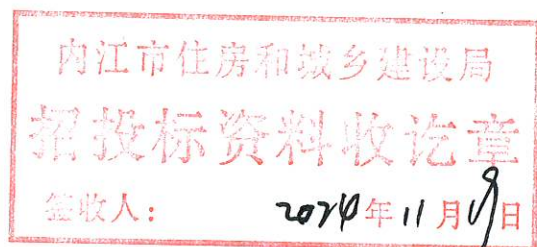 内江市住房和城乡建设局
招投标资料收讫章
签收人： 2024年11月19日